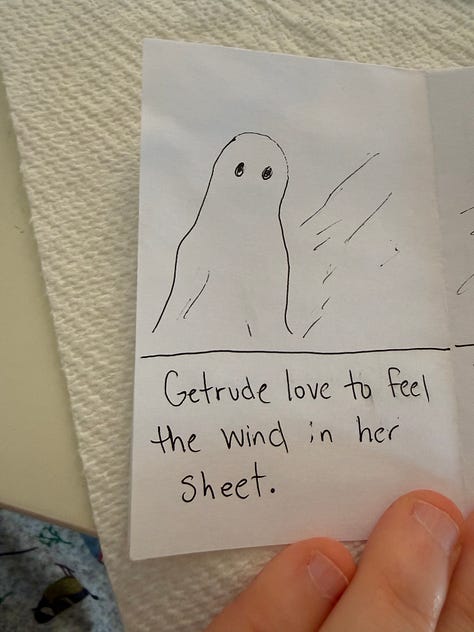 Getrude love to feel
the wind in her
sheet.